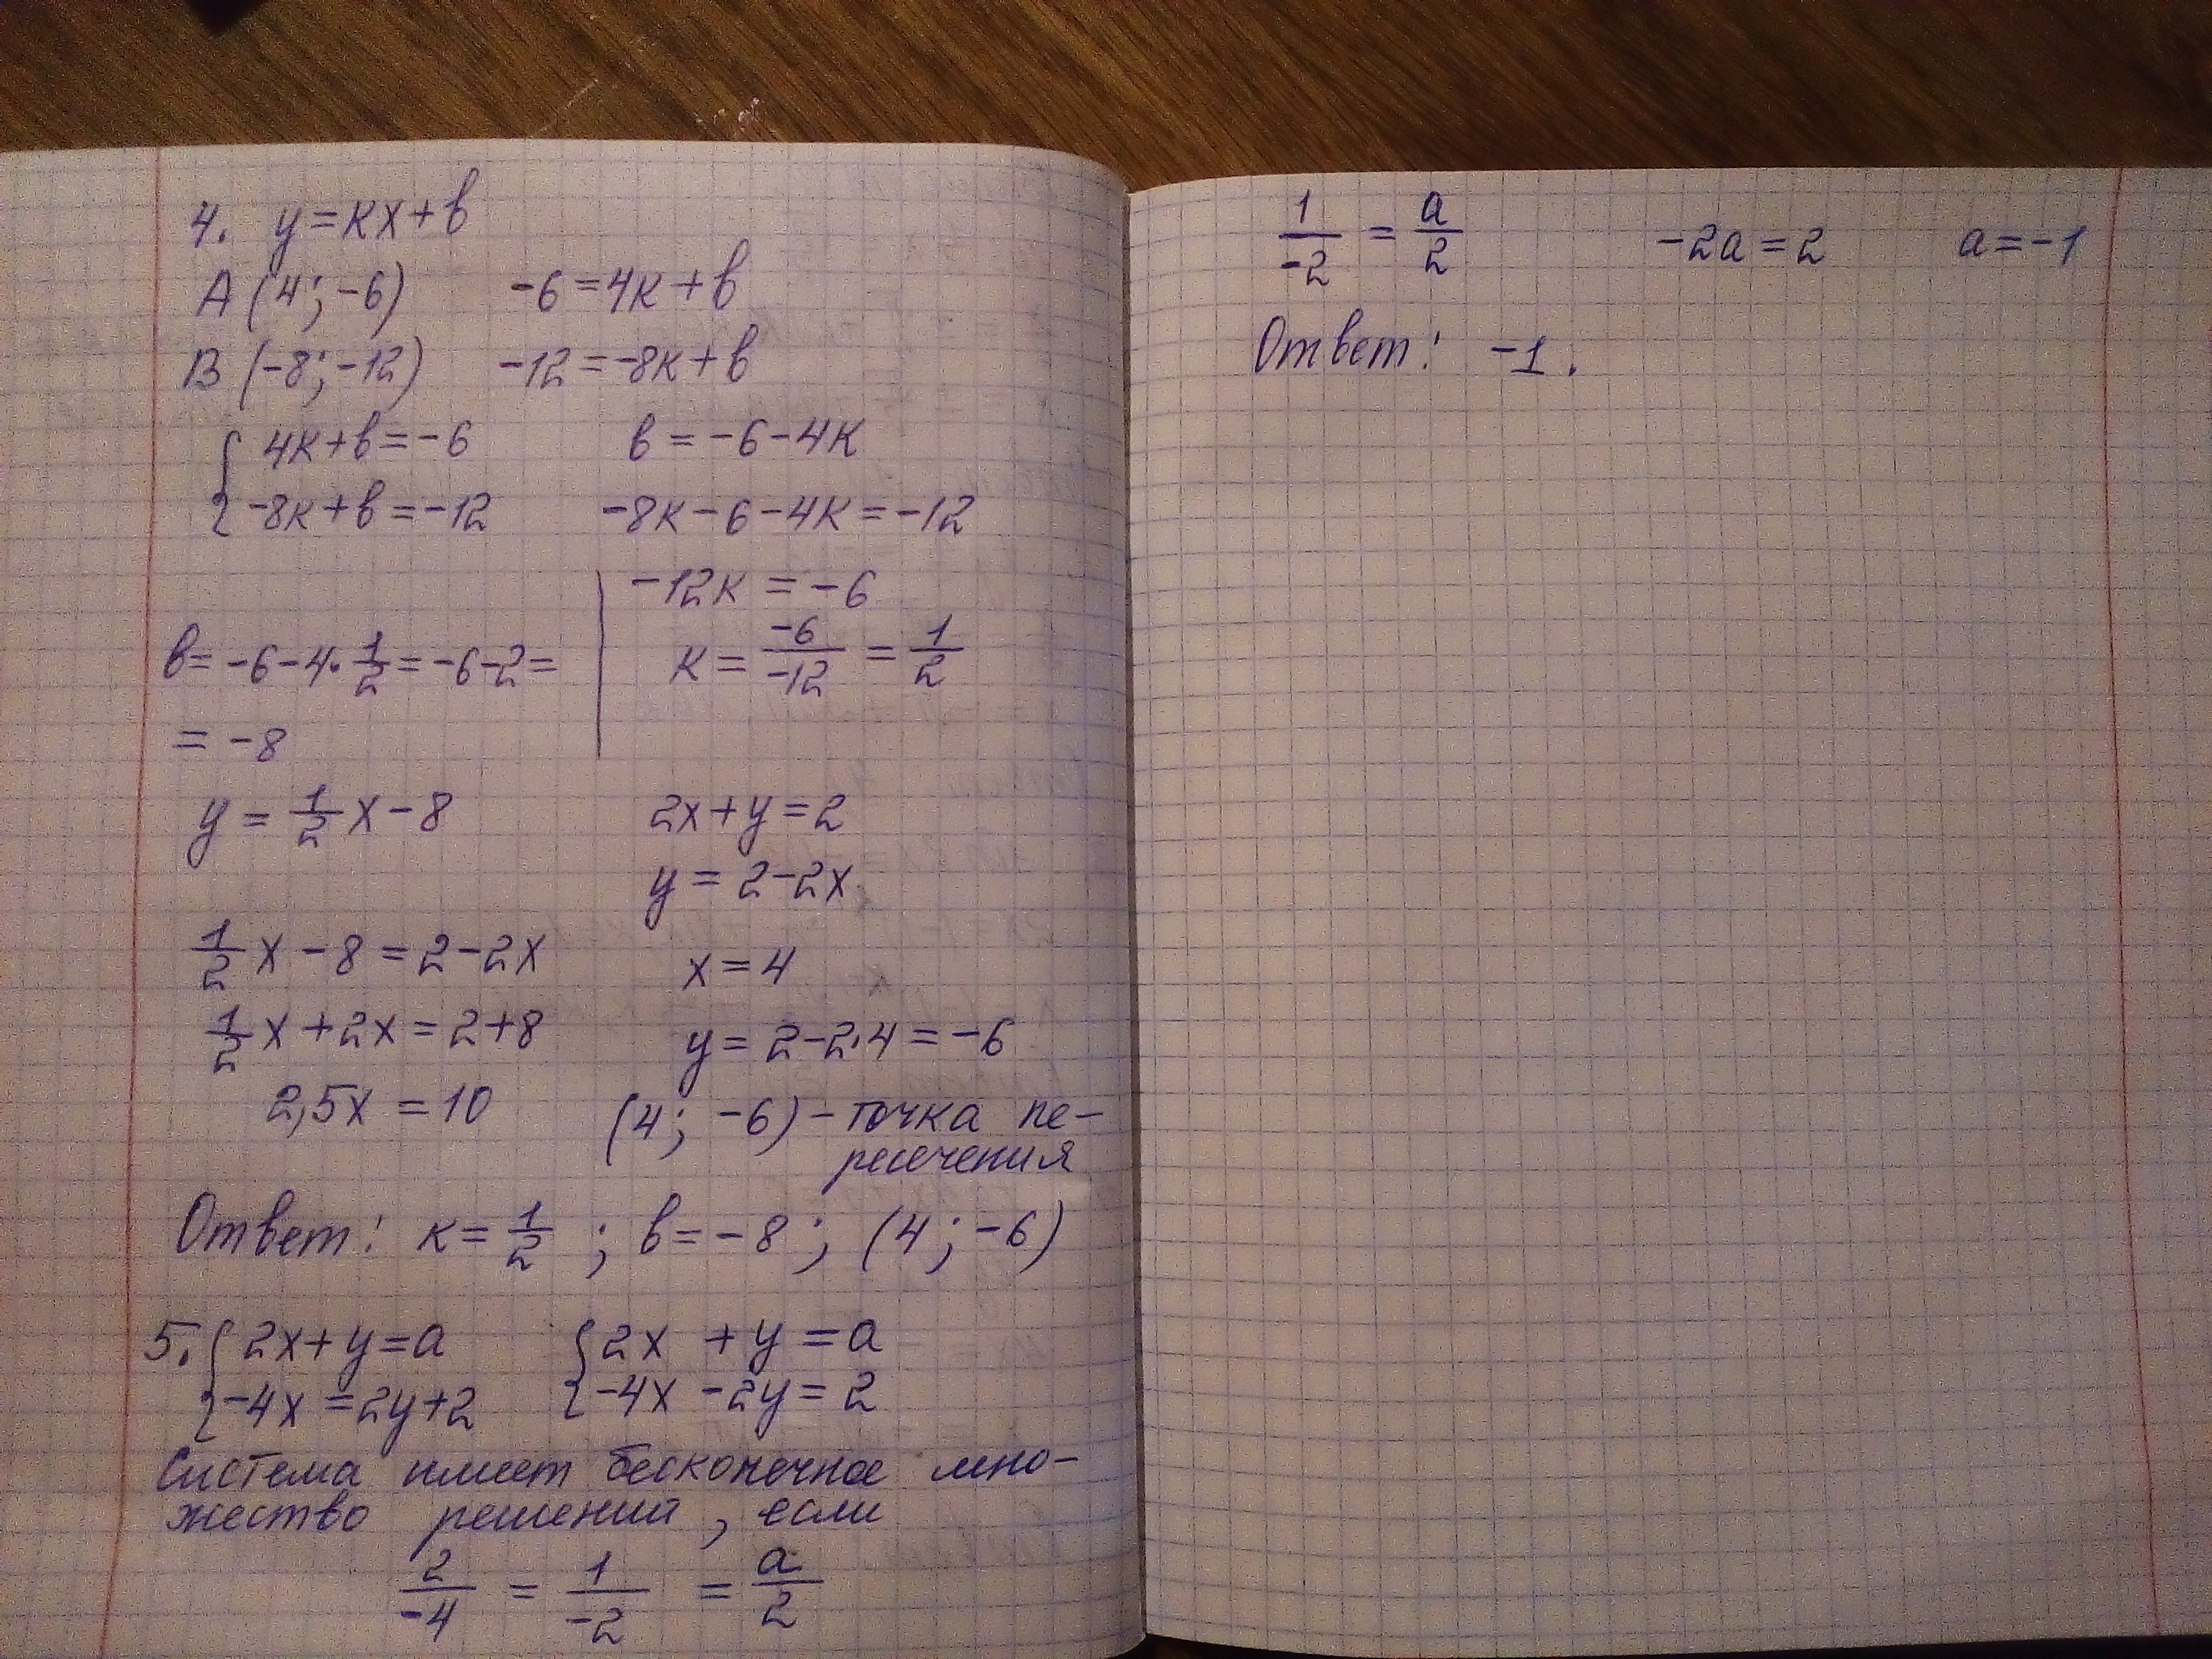 4. y = кx + в
A (4; -6)   -6 = 4к + в
B (-8; -12)   -12 = -8к + в
{ 4к + в = -6   в = -6 - 4к
{ -8к + в = -12   -8к - 6 - 4к = -12
-12к = -6
в = -6 - 4 · 1/2 = -6 - 2 =   к = -6/-12 = 1/2
= -8
y = 1/2 x - 8   2x + y = 2
y = 2 - 2x
1/2 x - 8 = 2 - 2x   x = 4
1/2 x + 2x = 2 + 8   y = 2 - 2·4 = -6
2,5x = 10   (4; -6) - точка пе-
ресечения
Ответ: к = 1/2 ; в = -8 ; (4; -6)
5. { 2x + y = a   { 2x + y = a
{ -4x = 2y + 2   { -4x - 2y = 2
Система имеет бесконечное мно-
жество решений, если
2/-4 = 1/-2 = a/2
1/-2 = a/2   -2a = 2   a = -1
Ответ: -1.